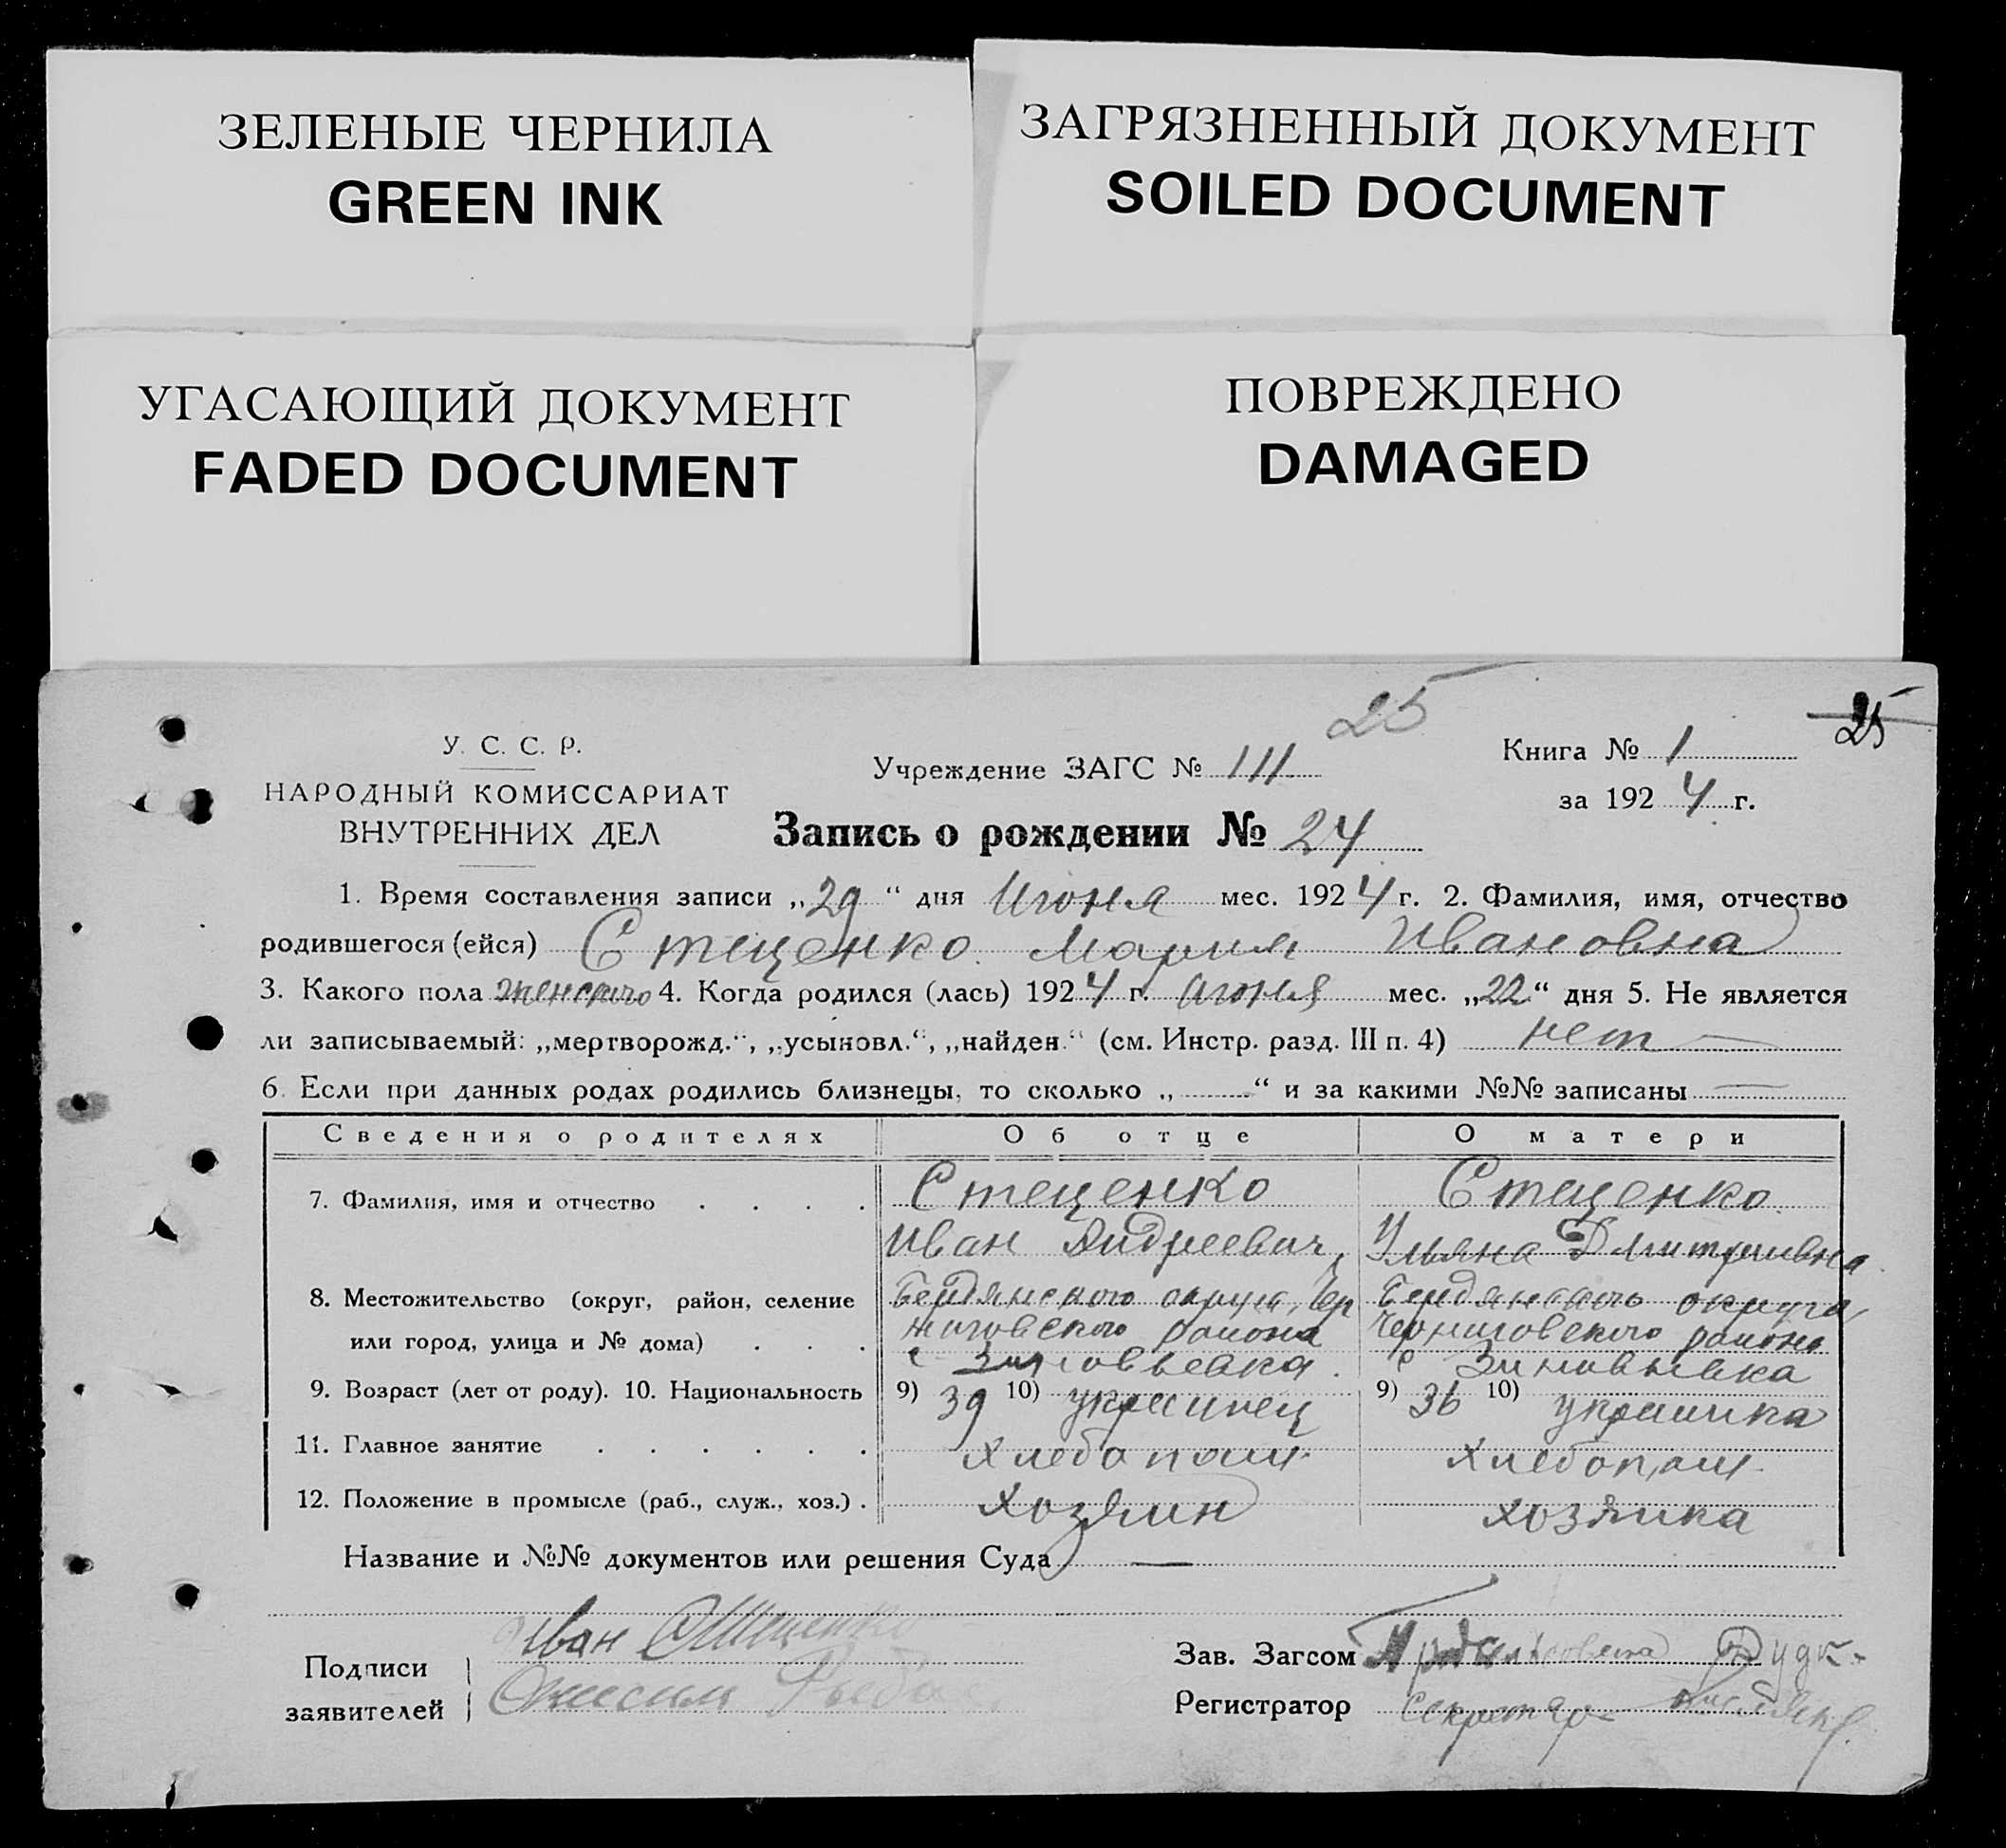 ЗЕЛЕНЫЕ ЧЕРНИЛА
GREEN INK
ЗАГРЯЗНЕННЫЙ ДОКУМЕНТ
SOILED DOCUMENT
УГАСАЮЩИЙ ДОКУМЕНТ
FADED DOCUMENT
ПОВРЕЖДЕНО
DAMAGED
25
25
У. С. С. Р.
НАРОДНЫЙ КОМИССАРИАТ
ВНУТРЕННИХ ДЕЛ
Учреждение ЗАГС № 111
Книга № 1
за 1924 г.
Запись о рождении № 24
1. Время составления записи „29“ дня Июня мес. 1924 г. 2. Фамилия, имя, отчество
родившегося (ейся) Стеценко Мария Ивановна
3. Какого пола женского 4. Когда родился (лась) 1924 г. июня мес. „22“ дня 5. Не является
ли записываемый: „мертворожд.“, „усыновл.“, „найден.“ (см. Инстр. разд. III п. 4) нет —
6. Если при данных родах родились близнецы, то сколько „ “ и за какими №№ записаны —
Сведения о родителях Об отце О матери
7. Фамилия, имя и отчество . . . . Стеценко Стеценко
Иван Андреевич Ульяна Дмитриевна
8. Местожительство (округ, район, селение Бердянского округа, Чер Бердянского округа,
или город, улица и № дома) . . . ниговского района Черниговского района
с Зиновьевка. с Зиновьевка
9. Возраст (лет от роду). 10. Национальность 9) 39 10) украинец 9) 36 10) украинка
11. Главное занятие . . . . . . хлебопаш. хлебопаш.
12. Положение в промысле (раб., служ., хоз.) . хозяин хозяйка
Название и №№ документов или решения Суда —
Подписи
заявителей
Иван Стеценко
Онисим
Зав. Загсом
Регистратор Секретарь